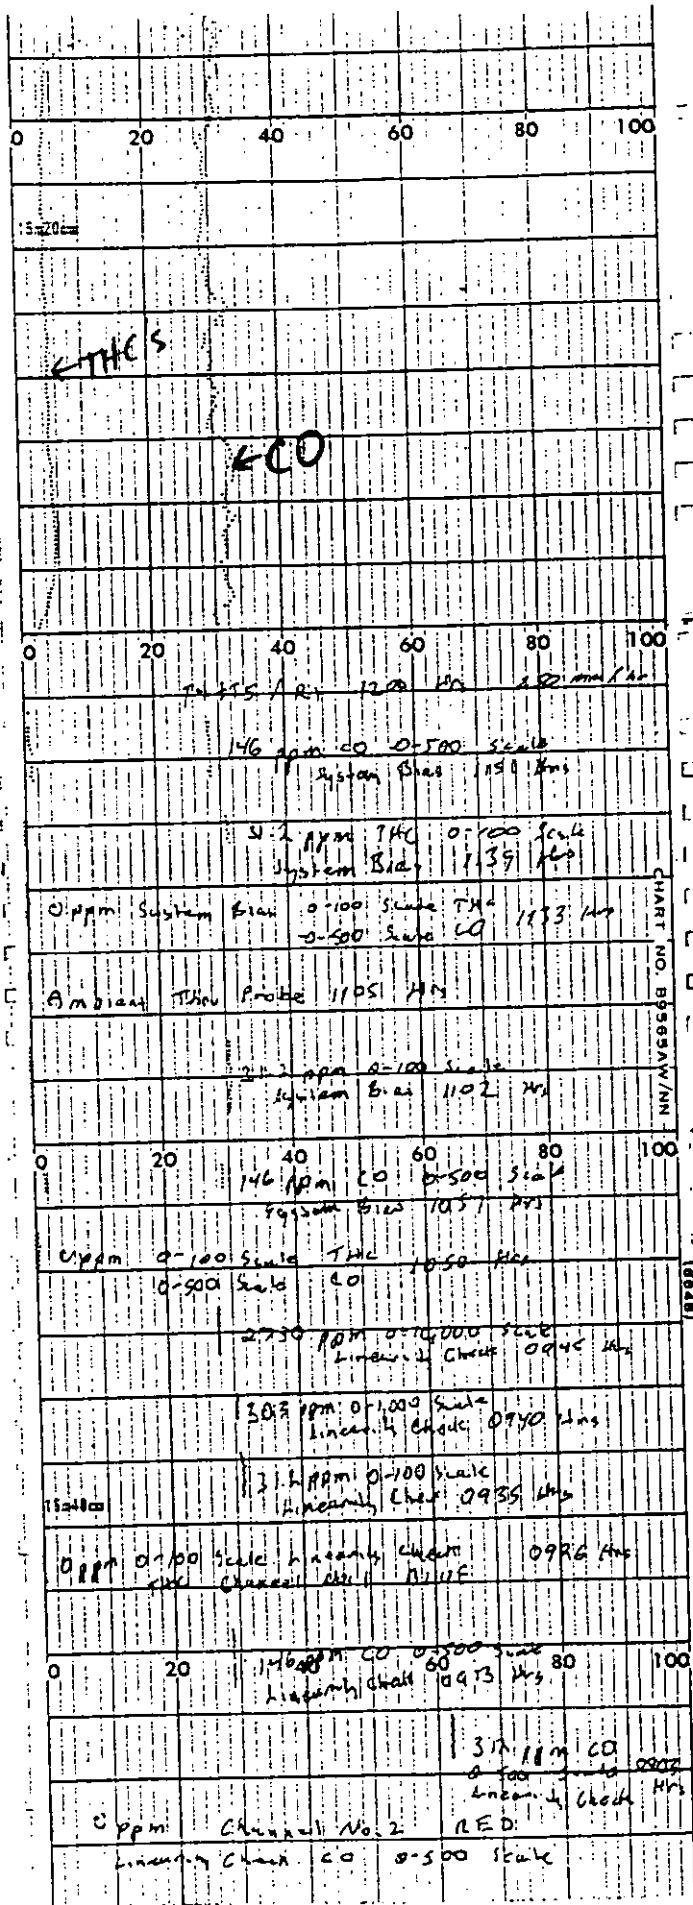 0 20 40 60 80 100
15=20cm
←THC'S
←CO
0 20 40 60 80 100
1200 Hrs mm/hr
146 ppm CO 0-500 Scale
System Bias 1151 Hrs
31.2 ppm THC 0-100 Scale
System Bias 1139 Hrs
0 ppm System Bias 0-100 Scale THC 1133 Hrs
0-500 Scale CO
CHART NO. B9565AW/NN
Ambient Thru Probe 1105 Hrs
31.2 ppm 0-100 Scale
System Bias 1102 Hrs
0 20 40 60 80 100
146 ppm CO 0-500 Scale
System Bias 1057 Hrs
0 ppm 0-100 Scale THC 1050 Hrs
0-500 Scale CO
2730 ppm 0-10,000 Scale
Linearity Check 0945 Hrs
303 ppm 0-1,000 Scale
Linearity Check 0940 Hrs
31.2 ppm 0-100 Scale
Linearity Check 0935 Hrs
0 ppm 0-100 Scale Linearity Check 0926 Hrs
THC Channel No. 1 BLUE
0 20 40 60 80 100
146 ppm CO 0-500 Scale
Linearity Check 0913 Hrs
ppm CO
0-500 Scale Hrs
Linearity Check
0 ppm Channel No. 2 RED
Linearity Check CO 0-500 Scale